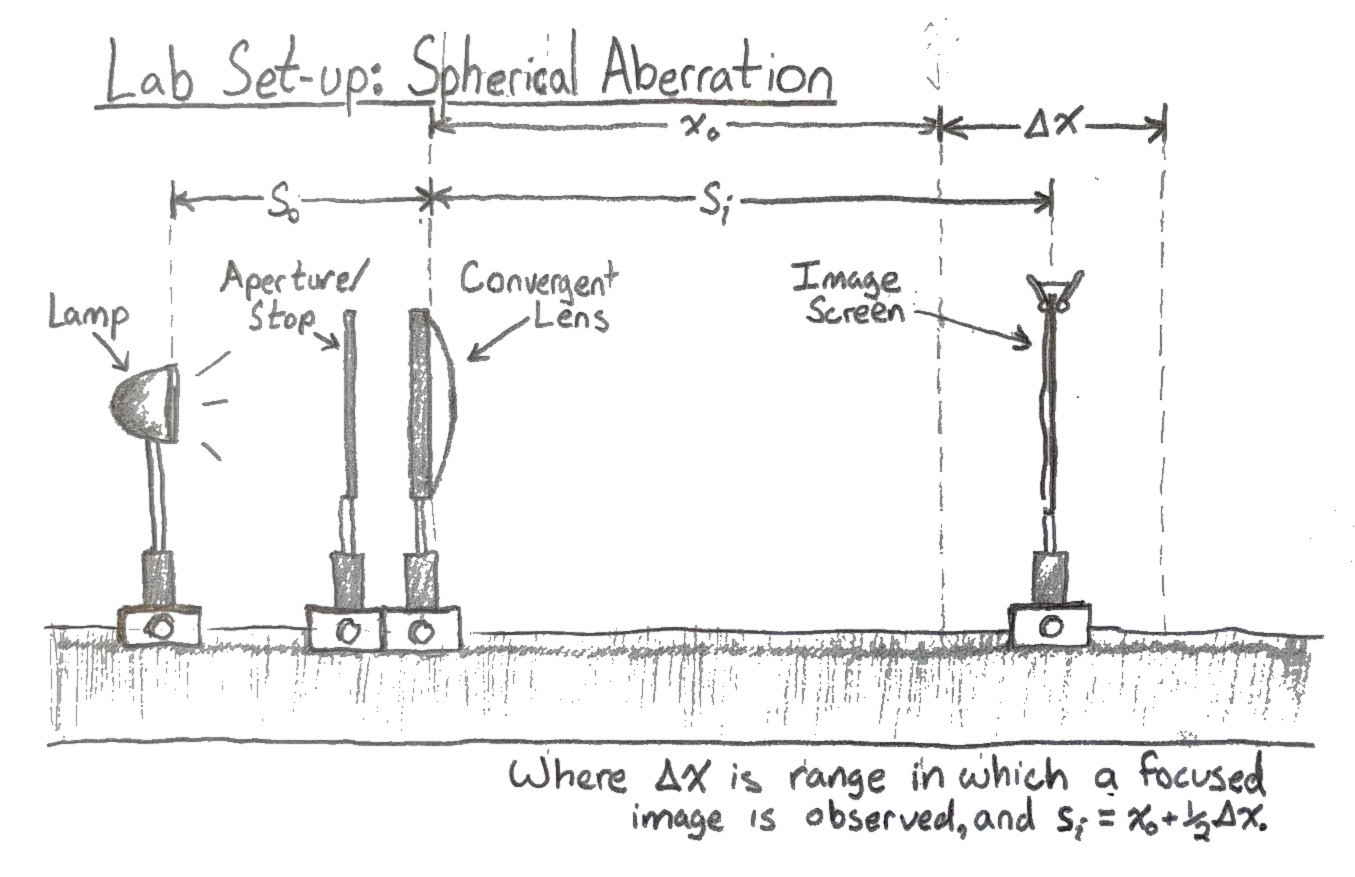 Lab Set-up: Spherical Aberration
x₀
Δx
S₀
Sᵢ
Lamp
Aperture/
Stop
Convergent
Lens
Image
Screen
Where Δx is range in which a focused
image is observed, and Sᵢ = x₀ + ½Δx.